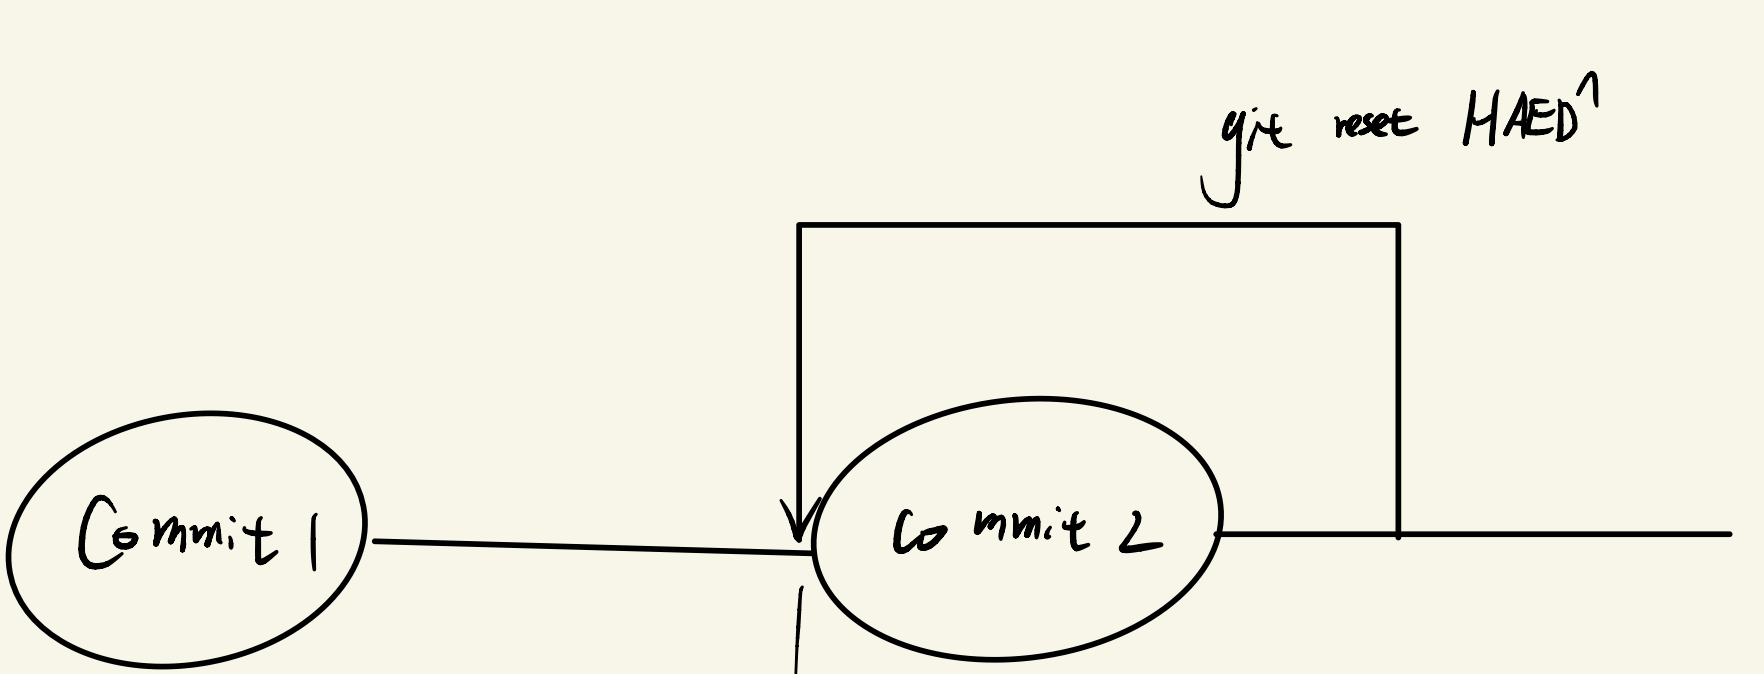 git reset HAED^
Commit 1
Commit 2